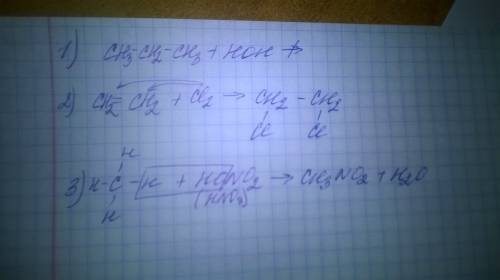 1) CH3-CH2-CH3 + HOH ↛
2) CH2=CH2 + Cl2 → CH2-CH2
Cl Cl
H
3) H-C-H + HONO2 → CH3NO2 + H2O
H (HNO3)